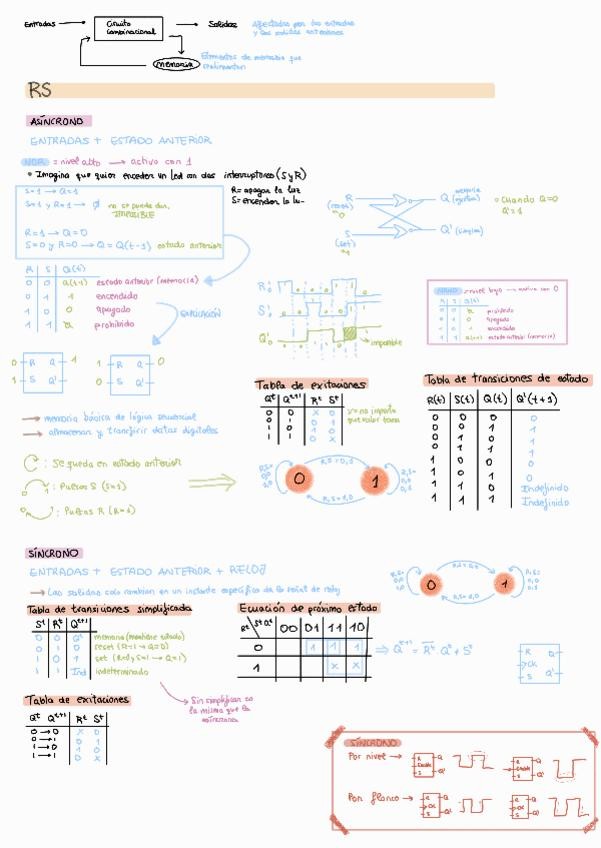 Entradas
Circuito
Combinacional
Salidas
Afectadas por las entradas
y las salidas anteriores
memoria
Elementos de memoria que
RS
ASÍNCRONO
ENTRADAS + ESTADO ANTERIOR
NOR = nivel alto → activo con 1
• Imagina que quier encender un led con dos interruptores (S y R)
S=1 → Q=1
S=1 y R=1 → ∅ no se puede dar,
IMPOSIBLE
R=1 → Q=0
S=0 y R=0 → Q = Q(t-1) estado anterior
R= apagar la luz
S= encender la lu-
R
(reset)
S
(set)
Q
Q'
• Cuando Q=0
Q'=1
R S Q(t)
0 0 Q(t-1) estado anterior (memoria)
0 1 1 encendado
1 0 0 apagado
1 1 prohibido
R
S
Q
→ imposible
NAND → nivel bajo → activo con 0
R S Q(t)
0 0 prohibido
0 1 apagado
1 0 encendido
1 1 estado anterior (memoria)
0 R Q 1
1 S Q'
1 R Q 0
0 S Q'
→ memoria básica de lógica secuencial
→ almacenar y transferir datos digitales
: Se queda en estado anterior
: Pulsas S (S=1)
: Pulsas R (R=1)
Tabla de exitaciones
Qt Qt+1 Rt St
0 0 X 0
0 1 0 1
1 0 1 0
1 1 0 X
Tabla de transiciones de estado
R(t) S(t) Q(t) Q'(t+1)
0 0 0 0
0 0 1 1
0 1 0 1
0 1 1 1
1 0 0 0
1 0 1 0
1 1 0 Indefinido
1 1 1 Indefinido
0
1
SÍNCRONO
ENTRADAS + ESTADO ANTERIOR + RELOJ
→ Las salidas solo cambian en un instante específico de la señal de reloj
0
1
Tabla de transiciones simplificada
St Rt Qt+1
0 0 Qt memoria (mantiene estado)
0 1 0 reset (R=1 → Q=0)
1 0 1 set (R=0 y S=1 → Q=1)
1 1 Ind indeterminado
Sin simplificar es
la misma que la
asíncrona
Ecuación de próximo estado
Rt St Qt 00 01 11 10
0 1 1 1
1 X X
⇒ Qt+1 = R̅t Qt + St
R Q
CK
S Q'
Tabla de exitaciones
Qt Qt+1 Rt St
0 → 0 X 0
0 → 1 0 1
1 → 0 1 0
1 → 1 0 X
SÍNCRONO
Por nivel →
R Q
Enable
S Q'
R Q
Enable
S Q'
Por flanco →
R Q
CK
S Q'
R Q
CK
S Q'